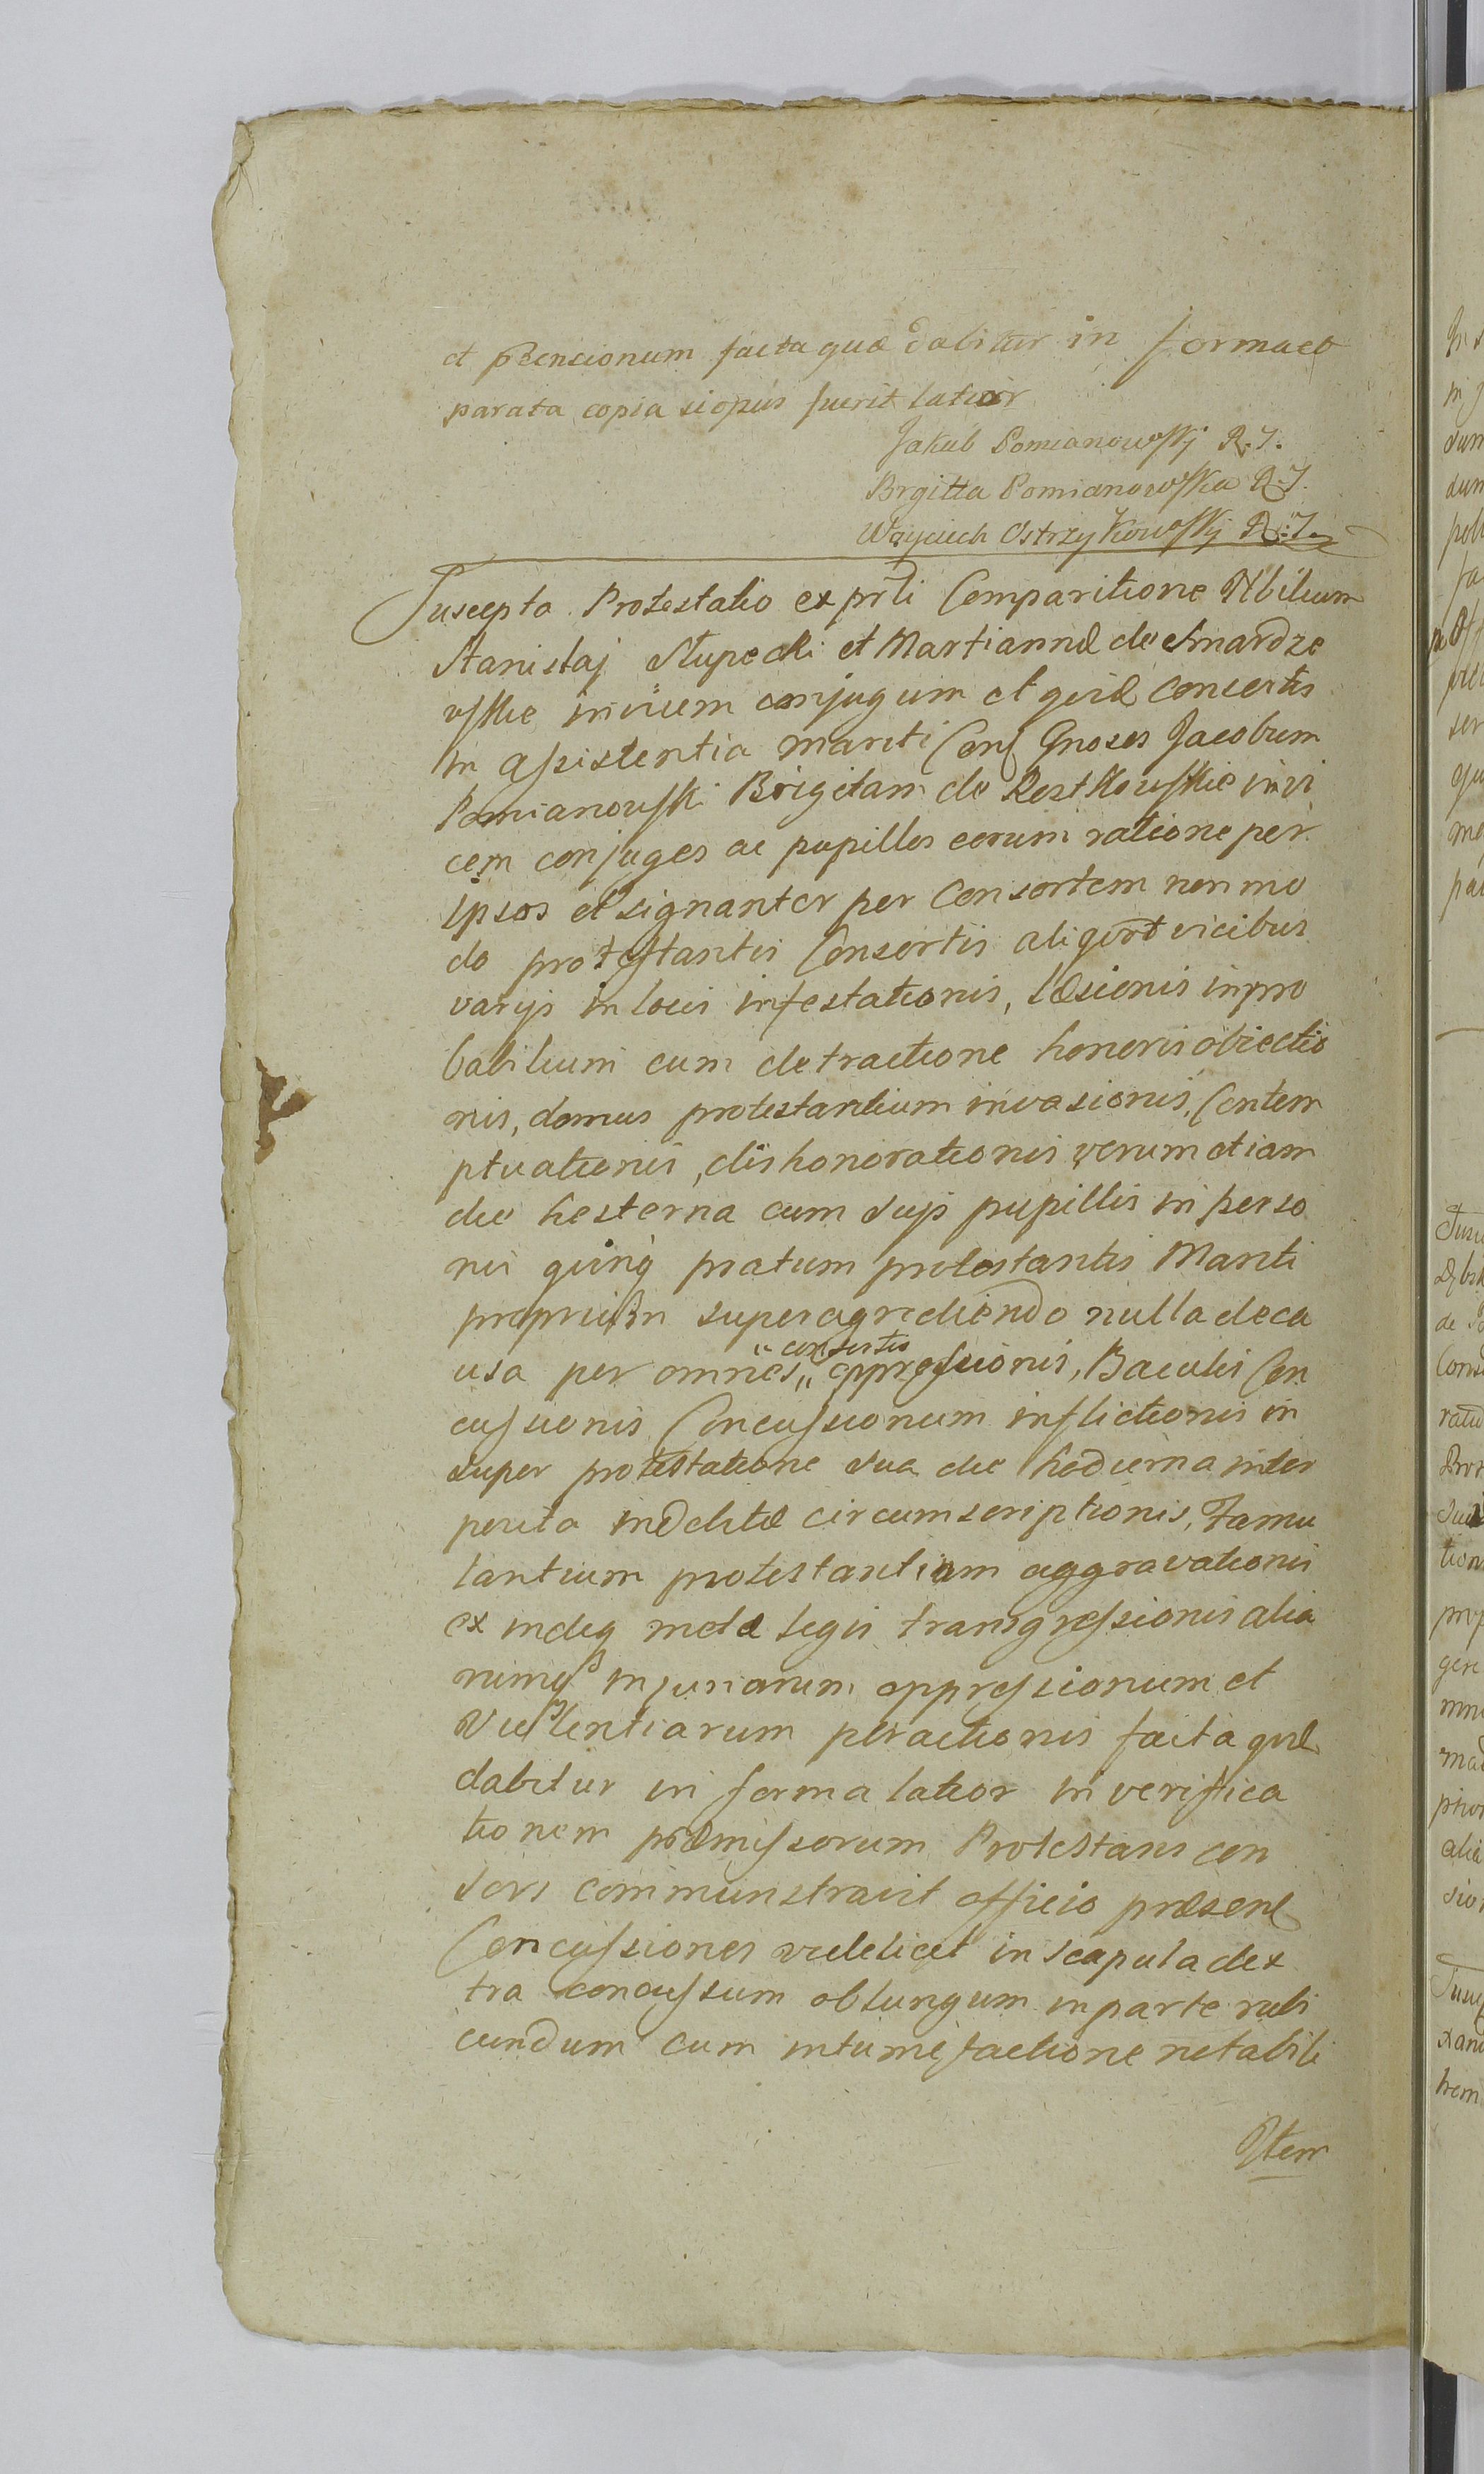 et pctencionum facta quæ dabitur in forma et
parata copia si opus fuerit latior
Jakub Pomianowsky R. J.
Brgitta Pomianowska R. J.
Woyciech Ostrzykowsky R. J.
Suscepta Protestatio ex prti Comparitione Nbilium
Stanislaj Słupecki et Martiannæ de Smardze
wskie invicem conjugum et qvid Consortis
in assistentia mariti Con Gnosos Jacobum
Pomianowski Brigitam de Rostkowskie invi
cem conjuges ac pupillos eorum ratione per
ipsos et signanter per Consortem non mo
do protestantis Consortis aliqvot vicibus
varijs in locis infestationis, læsionis inpro
babilium cum detractione honoris obiectio
nis, domus protestantium invasionis, Contem
ptuationis, dishonorationis verum etiam
die hesterna cum suis pupillis in perso
nis qvinq pratum protestantis Mariti
proprium superagrediendo nulla de ca
usa per omnes „ oppressionis, Baculis Con
„ consortis
cussionis Concussionum inflictionis in
super protestatione sua die hodierna inter
perita indebitæ circumscriptionis, Famu
lantium protestantium aggravationis
ex indeq metæ legis transgressionis alia
rumqs injuriarum oppressionum et
Violentiarum peractionis facta qvæ
dabitur in forma latior in verifica
tionem præmissorum Protestans con
sors communstravit officio præsenti
Concussiones videlicet in scapula dex
tra concussum oblungum in parte rubi
cundum cum intumefactione notabili
Item